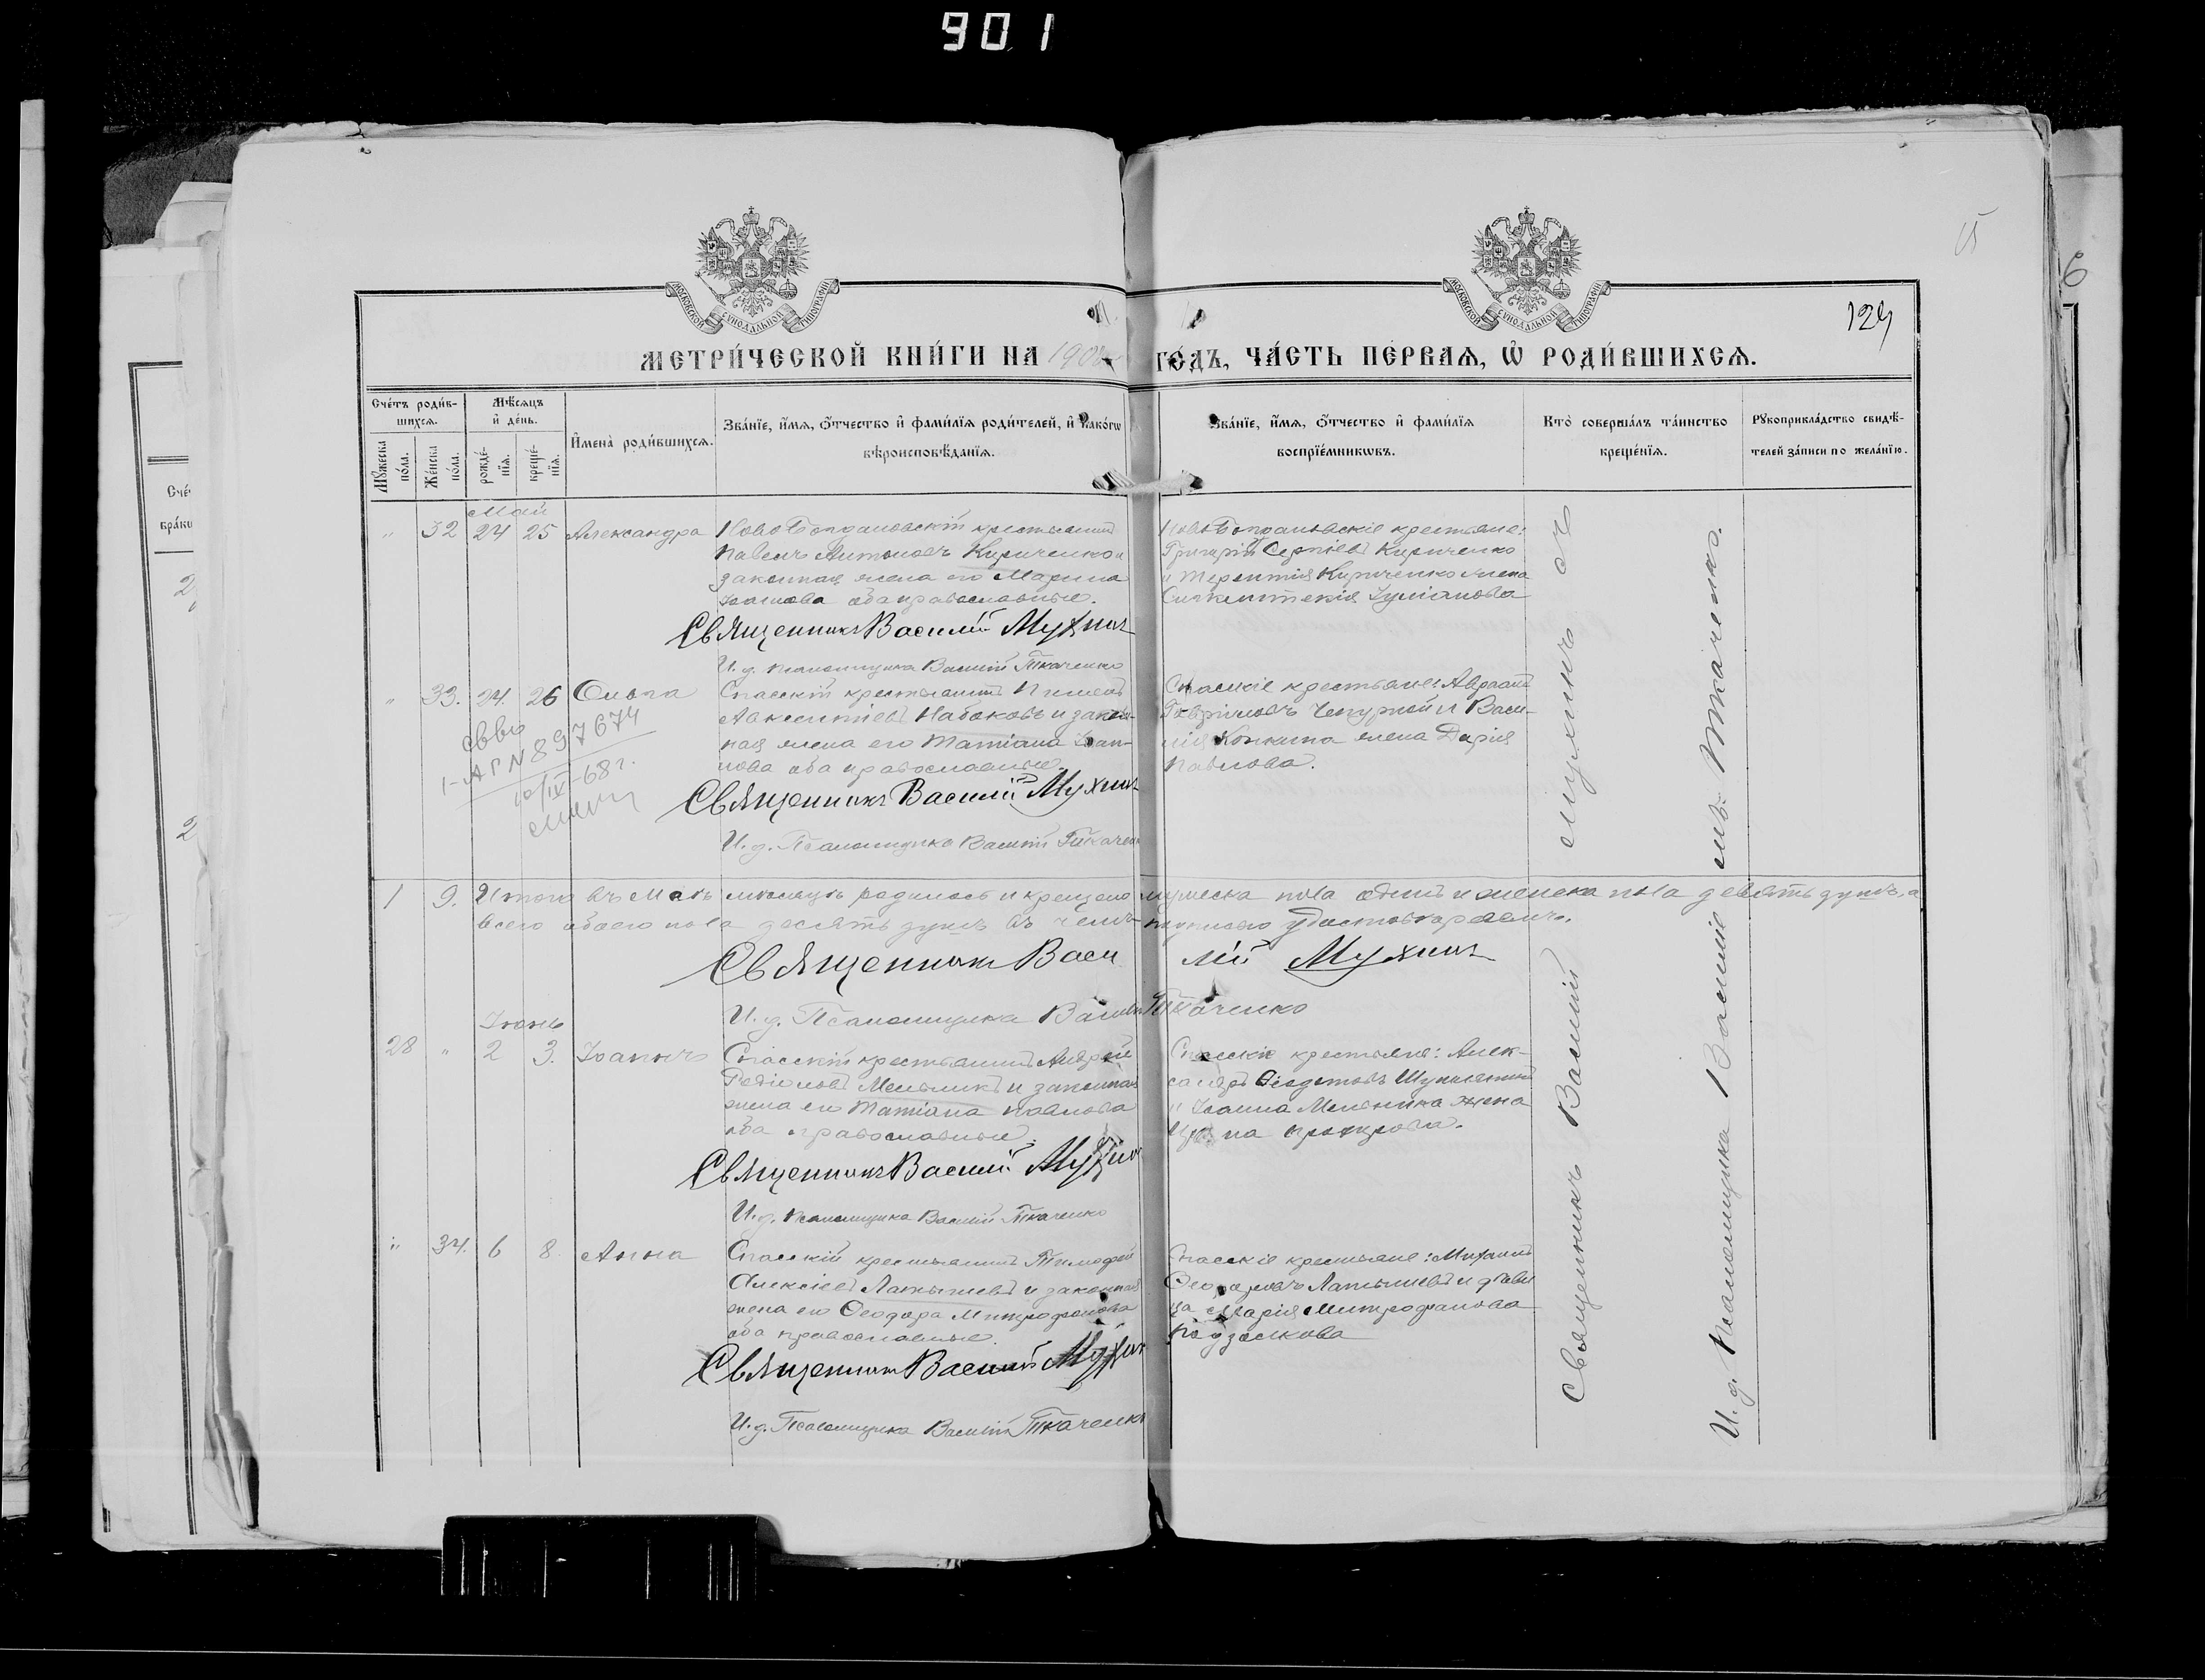 901
МОСКОВСКОЙ СУНОДАЛЬНОЙ ТИПОГРАФІИ
МОСКОВСКОЙ СУНОДАЛЬНОЙ ТИПОГРАФІИ
124
МЕТРИ́ЧЕСКОЙ КНИ́ГИ НА 190 ГО́ДЪ, ЧА́СТЬ ПЕ́РВАѦ, Ѡ҆ РОДИ́ВШИХСѦ.
Сче́тъ роди́вшихсѧ.
Мꙋ́жеска по́ла.
Же́нска по́ла.
Мѣ́сѧцъ и҆ де́нь.
рожде́нїѧ.
креще́нїѧ.
И҆мена̀ роди́вшихсѧ.
Зва́нїе, и҆́мѧ, ѻ҆́тчество и҆ фами́лїѧ роди́телей, и҆ како́гѡ
вѣроисповѣ́данїѧ.
Зва́нїе, и҆́мѧ, ѻ҆́тчество и҆ фами́лїѧ
воспрїе́мникѡвъ.
Кто̀ соверша́лъ та́инство
креще́нїѧ.
Рꙋкоприкла́дство свидѣ́телей за́писи по жела́нїю.
Май
" 32 24 25 Александра
Новобогдановскій крестьянинъ
Павелъ Антоновъ Кириченко и
законная жена его Марина
Іоаннова оба православные.
Священникъ Василій Мухинъ
И. д. псаломщика Василій Ткаченко
Новобогдановскіе крестьяне:
Григорій Сергіевъ Кириченко
и Терентія Кириченко жена
Синклитикія Іуліанова
" 33. 24. 26 Ольга
Спасскій крестьянинъ Пименъ
Авксентіевъ Набоковъ и закон-
ная жена его Татіана Іоан-
нова оба православные.
Священникъ Василій Мухинъ
И. д. Псаломщика Василій Ткаченко
Спасскіе крестьяне: Авраамъ
Гавріиловъ Чепурной и Васи-
лія Конкина жена Дарія
Павлова.
1-АГ N 897674
10/IX-68 г.
1 9. Итого въ Маѣ мѣсяцѣ родилось и крещено мужеска пола одинъ и женска пола девять душъ, а
всего обоего пола десять душъ въ чемъ удостовѣряемъ.
Священникъ Василій Мухинъ
И. д. Псаломщика Василій Ткаченко
Іюнь
28 " 2 3. Іоаннъ
Спасскій крестьянинъ Андрей
Родіоновъ Мельникъ и законная
жена его Татіана Павлова
оба православные.
Священникъ Василій Мухинъ
И. д. псаломщика Василій Ткаченко
Спасскіе крестьяне: Алек-
сандръ Ѳеодотовъ
и Іоанна Мельника жена
" 34. 6 8. Анна
Спасскій крестьянинъ Тимофей
Алексіевъ Латышевъ и законная
жена его Ѳеодора Митрофанова
оба православные.
Священникъ Василій Мухинъ
И. д. Псаломщика Василій Ткаченко
Спасскіе крестьяне: Михаилъ
Ѳеодоровъ Латышевъ и дѣви-
ца Марія Митрофанова
Священникъ Василій Мухинъ съ
И. д. Псаломщика Василіемъ Ткаченко.